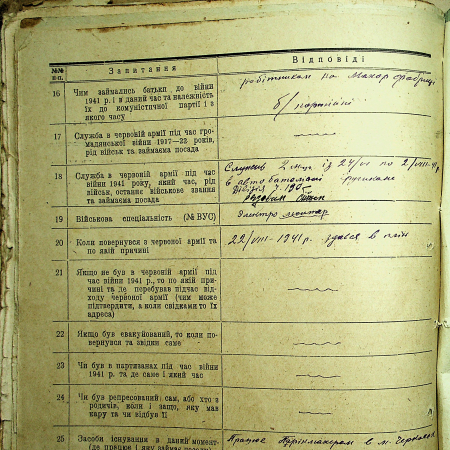 №№ п-п.
Запитання
Відповіді
16 Чим займались батьки до війни
1941 р. і в даний час та належність
їх до комуністичної партії і з
якого часу
робітником на Махор фабриці
б/партійні
17 Служба в червоній армії під час гро-
мадянської війни 1917—22 років,
рід військ та займаєма посада
18 Служба в червоній армії під час
війни 1941 року, який час, рід
військ, останнє військове звання
та займаєма посада
Служив 2 місяця із 24/VI по 2/VIII
в автобатальоні
Дивізія 7. 190
19 Військова спеціальність (№ ВУС)
Электро монтар
20 Коли повернувся з червоної армії та
по якій причині
22/VIII-1941 р. здався в плін
21 Якщо не був в червоній армії під
час війни 1941 р., то по якій при-
чині та де перебував підчас від-
ходу червоної армії (чим може
підтвердити, а коли свідками то їх
адреса)
22 Якщо був евакуйований, то коли по-
вернувся та звідки саме
23 Чи був в партизанах під час війни
1941 р. та де саме і який час
24 Чи був репресований сам, або хто з
родичів, коли і защо, яку мав
кару, та чи відбув її
25 Засоби існування в даний момент
(де працює і яку займає
Працює в м. Черкассах